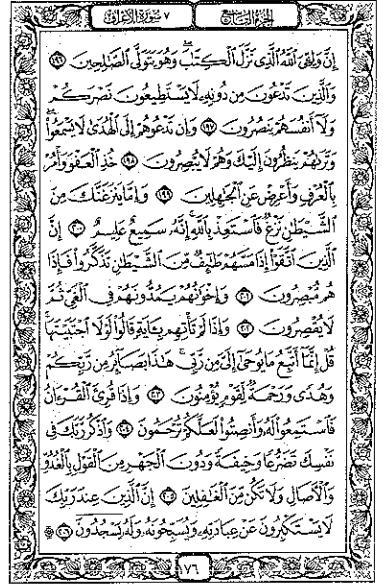 ٧ سُورَةُ الأَعْرَافِ الجُزْءُ التَّاسِعُ
إِنَّ وَلِـِّۧيَ ٱللَّهُ ٱلَّذِي نَزَّلَ ٱلْكِتَٰبَ وَهُوَ يَتَوَلَّى ٱلصَّٰلِحِينَ ١٩٦
وَٱلَّذِينَ تَدْعُونَ مِن دُونِهِۦ لَا يَسْتَطِيعُونَ نَصْرَكُمْ
وَلَآ أَنفُسَهُمْ يَنصُرُونَ ١٩٧ وَإِن تَدْعُوهُمْ إِلَى ٱلْهُدَىٰ لَا يَسْمَعُوا۟
وَتَرَىٰهُمْ يَنظُرُونَ إِلَيْكَ وَهُمْ لَا يُبْصِرُونَ ١٩٨ خُذِ ٱلْعَفْوَ وَأْمُرْ
بِٱلْعُرْفِ وَأَعْرِضْ عَنِ ٱلْجَٰهِلِينَ ١٩٩ وَإِمَّا يَنزَغَنَّكَ مِنَ
ٱلشَّيْطَٰنِ نَزْغٌ فَٱسْتَعِذْ بِٱللَّهِ إِنَّهُۥ سَمِيعٌ عَلِيمٌ ٢٠٠ إِنَّ
ٱلَّذِينَ ٱتَّقَوْا۟ إِذَا مَسَّهُمْ طَٰٓئِفٌ مِّنَ ٱلشَّيْطَٰنِ تَذَكَّرُوا۟ فَإِذَا
هُم مُّبْصِرُونَ ٢٠١ وَإِخْوَٰنُهُمْ يَمُدُّونَهُمْ فِي ٱلْغَيِّ ثُمَّ
لَا يُقْصِرُونَ ٢٠٢ وَإِذَا لَمْ تَأْتِهِم بِـَٔايَةٍ قَالُوا۟ لَوْلَا ٱجْتَبَيْتَهَا
قُلْ إِنَّمَآ أَتَّبِعُ مَا يُوحَىٰٓ إِلَيَّ مِن رَّبِّي هَٰذَا بَصَآئِرُ مِن رَّبِّكُمْ
وَهُدًى وَرَحْمَةٌ لِّقَوْمٍ يُؤْمِنُونَ ٢٠٣ وَإِذَا قُرِئَ ٱلْقُرْءَانُ
فَٱسْتَمِعُوا۟ لَهُۥ وَأَنصِتُوا۟ لَعَلَّكُمْ تُرْحَمُونَ ٢٠٤ وَٱذْكُر رَّبَّكَ فِي
نَفْسِكَ تَضَرُّعًا وَخِيفَةً وَدُونَ ٱلْجَهْرِ مِنَ ٱلْقَوْلِ بِٱلْغُدُوِّ
وَٱلْءَاصَالِ وَلَا تَكُن مِّنَ ٱلْغَٰفِلِينَ ٢٠٥ إِنَّ ٱلَّذِينَ عِندَ رَبِّكَ
لَا يَسْتَكْبِرُونَ عَنْ عِبَادَتِهِۦ وَيُسَبِّحُونَهُۥ وَلَهُۥ يَسْجُدُونَ ۩ ٢٠٦
١٧٦